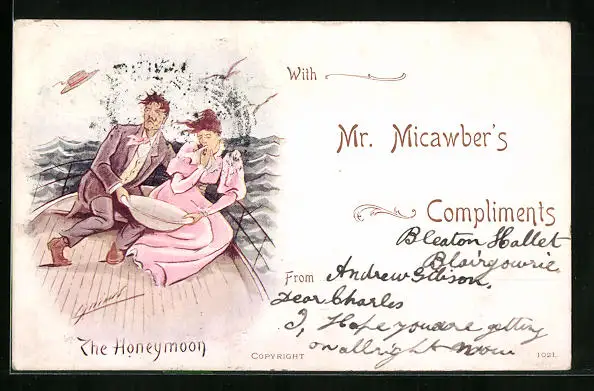 With
Mr. Micawber's
Compliments
Bleaton Hallet
Blairgowrie
From Andrew Gibson.
Dear Charles
I, Hope you are getting
on allright now
The Honeymoon
COPYRIGHT
1021.